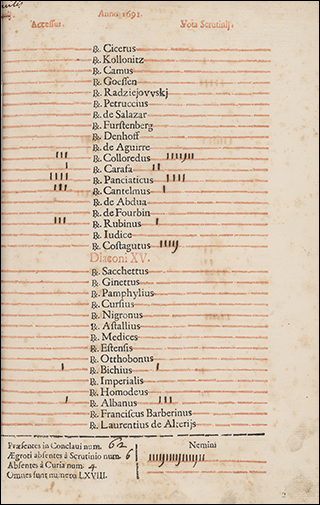 Accessus. Anno 1691. Vota Scrutinij.
℞. Cicerus
℞. Kollonitz
℞. Camus
℞. Goessen
℞. Radziejovvskj
℞. Petruccius
℞. de Salazar
℞. Furstenberg
℞. Denhoff
℞. de Aguirre
℞. Colloredus
℞. Carafa
℞. Panciaticus
℞. Cantelmus
℞. de Abdua
℞. de Fourbin
℞. Rubinus
℞. Iudice
℞. Costagutus
Diaconi XV.
℞. Sacchettus
℞. Ginettus
℞. Pamphylius
℞. Cursius
℞. Nigronus
℞. Astallius
℞. Medices
℞. Estensis
℞. Otthobonus
℞. Bichius
℞. Imperialis
℞. Homodeus
℞. Albanus
℞. Franciscus Barberinus
℞. Laurentius de Alterijs
Præsentes in Conclaui num. 62 Nemini
Ægroti absentes à Scrutinio num. 6
Absentes à Curia num. 4
Omnes sunt numero LXVIII.